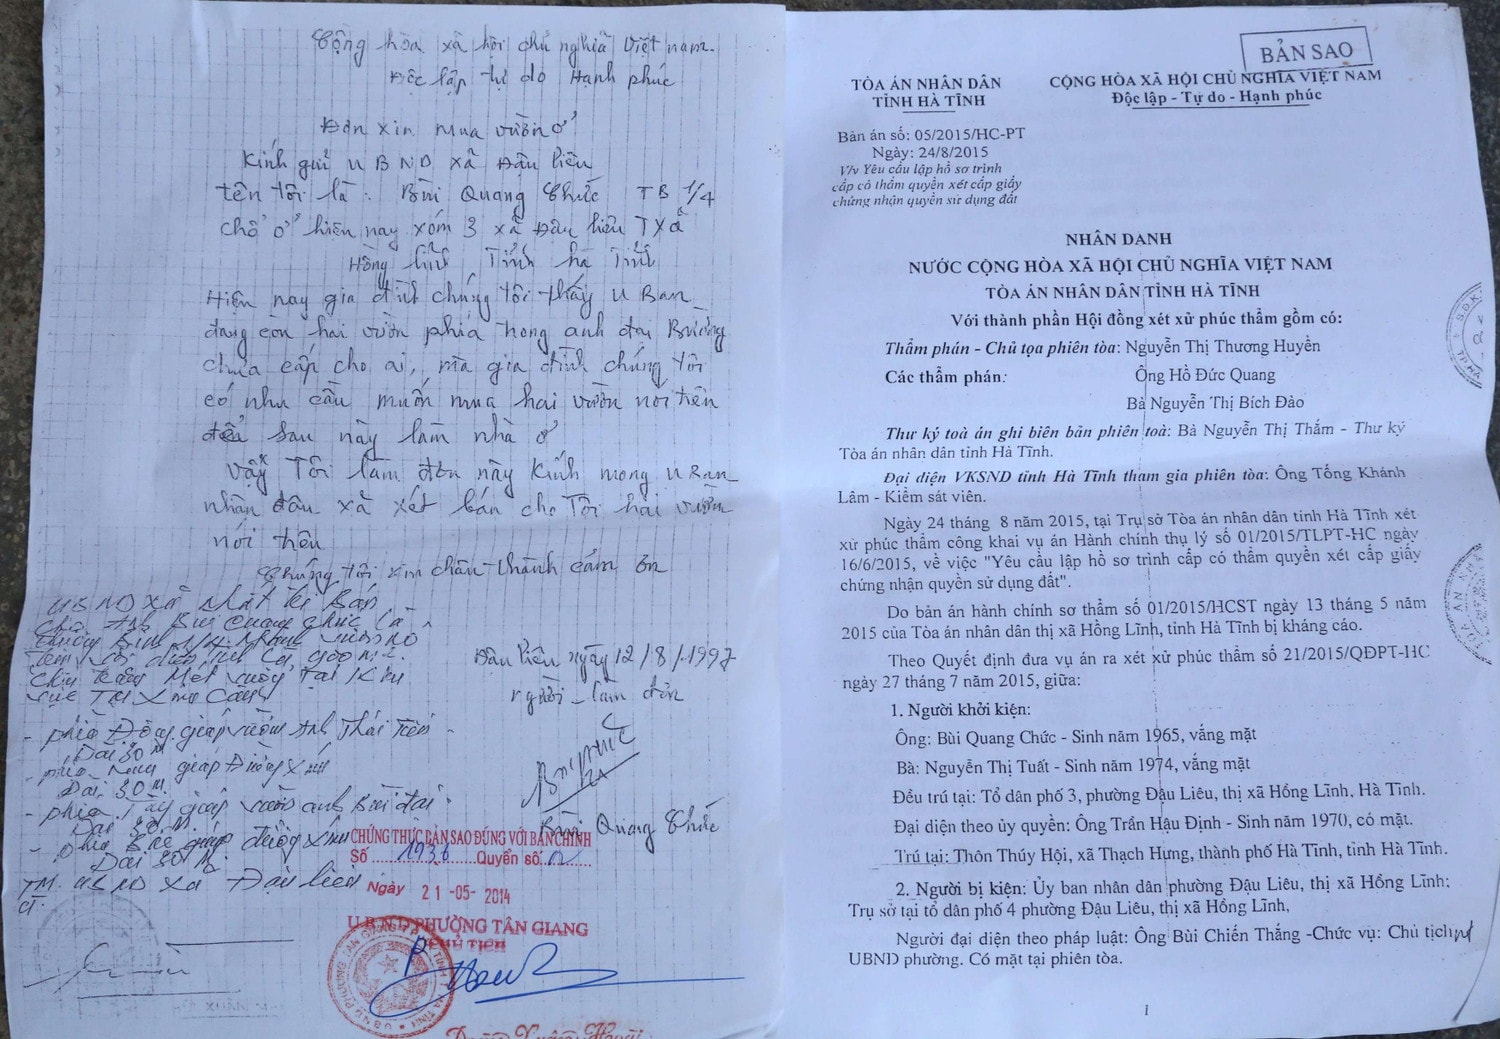 Cộng hòa xã hội chủ nghĩa Việt nam.
Độc lập tự do Hạnh phúc
Đơn xin mua vườn ở
Kính gửi UBND xã Đậu liêu
tên tôi là: Bùi Quang Chức TB 1/4
chổ ở hiện nay xóm 3 xã Đậu liêu TXã
Hồng lĩnh Tỉnh hà Tĩnh
Hiện nay gia đình chúng tôi thấy U Ban
đang còn hai vườn phía trong anh đại Bường
chưa cấp cho ai, mà gia đình chúng tôi
có nhu cầu muốn mua hai vườn nói trên
để sau này làm nhà ở
Vậy Tôi làm đơn này Kính mong U Ban
nhân dân xã xét bán cho Tôi hai vườn
nói trên
Chúng tôi xin chân thành cảm ơn
UBND xã nhất trí Bán
cho Anh Bùi Quang Chức là
thương Binh 1/4
Đậu liêu ngày 12/8/1997
người làm đơn
Bùi Quang Chức
- phía Đông giáp vườn Anh Thái Tiến
Dài 30 M
- phía Nam giáp Đường xóm
Dài 30 M
- phía Tây giáp vườn anh Bùi đại
Dài 30 M
- phía Bắc giáp đường xóm
Dài 30 M
TM. UBND xã Đậu liêu
CT.
CHỨNG THỰC BẢN SAO ĐÚNG VỚI BẢN CHÍNH
Số 1936 Quyển số
Ngày 21-05-2014
U.B.N.D PHƯỜNG TÂN GIANG
CHỦ TỊCH
BẢN SAO
TÒA ÁN NHÂN DÂN
TỈNH HÀ TĨNH
CỘNG HÒA XÃ HỘI CHỦ NGHĨA VIỆT NAM
Độc lập - Tự do - Hạnh phúc
Bản án số: 05/2015/HC-PT
Ngày: 24/8/2015
V/v Yêu cầu lập hồ sơ trình
cấp có thẩm quyền xét cấp giấy
chứng nhận quyền sử dụng đất
NHÂN DANH
NƯỚC CỘNG HÒA XÃ HỘI CHỦ NGHĨA VIỆT NAM
TÒA ÁN NHÂN DÂN TỈNH HÀ TĨNH
Với thành phần Hội đồng xét xử phúc thẩm gồm có:
Thẩm phán - Chủ tọa phiên tòa: Nguyễn Thị Thương Huyền
Các thẩm phán: Ông Hồ Đức Quang
Bà Nguyễn Thị Bích Đào
Thư ký toà án ghi biên bản phiên toà: Bà Nguyễn Thị Thắm - Thư ký
Tòa án nhân dân tỉnh Hà Tĩnh.
Đại diện VKSND tỉnh Hà Tĩnh tham gia phiên tòa: Ông Tống Khánh
Lâm - Kiểm sát viên.
Ngày 24 tháng 8 năm 2015, tại Trụ sở Tòa án nhân dân tỉnh Hà Tĩnh xét
xử phúc thẩm công khai vụ án Hành chính thụ lý số 01/2015/TLPT-HC ngày
16/6/2015, về việc "Yêu cầu lập hồ sơ trình cấp có thẩm quyền xét cấp giấy
chứng nhận quyền sử dụng đất".
Do bản án hành chính sơ thẩm số 01/2015/HCST ngày 13 tháng 5 năm
2015 của Tòa án nhân dân thị xã Hồng Lĩnh, tỉnh Hà Tĩnh bị kháng cáo.
Theo Quyết định đưa vụ án ra xét xử phúc thẩm số 21/2015/QĐPT-HC
ngày 27 tháng 7 năm 2015, giữa:
1. Người khởi kiện:
Ông: Bùi Quang Chức - Sinh năm 1965, vắng mặt
Bà: Nguyễn Thị Tuất - Sinh năm 1974, vắng mặt
Đều trú tại: Tổ dân phố 3, phường Đậu Liêu, thị xã Hồng Lĩnh, Hà Tĩnh.
Đại diện theo ủy quyền: Ông Trần Hậu Định - Sinh năm 1970, có mặt.
Trú tại: Thôn Thúy Hội, xã Thạch Hưng, thành phố Hà Tĩnh, tỉnh Hà Tĩnh.
2. Người bị kiện: Ủy ban nhân dân phường Đậu Liêu, thị xã Hồng Lĩnh;
Trụ sở tại tổ dân phố 4 phường Đậu Liêu, thị xã Hồng Lĩnh,
Người đại diện theo pháp luật: Ông Bùi Chiến Thắng -Chức vụ: Chủ tịch
UBND phường. Có mặt tại phiên tòa.
1